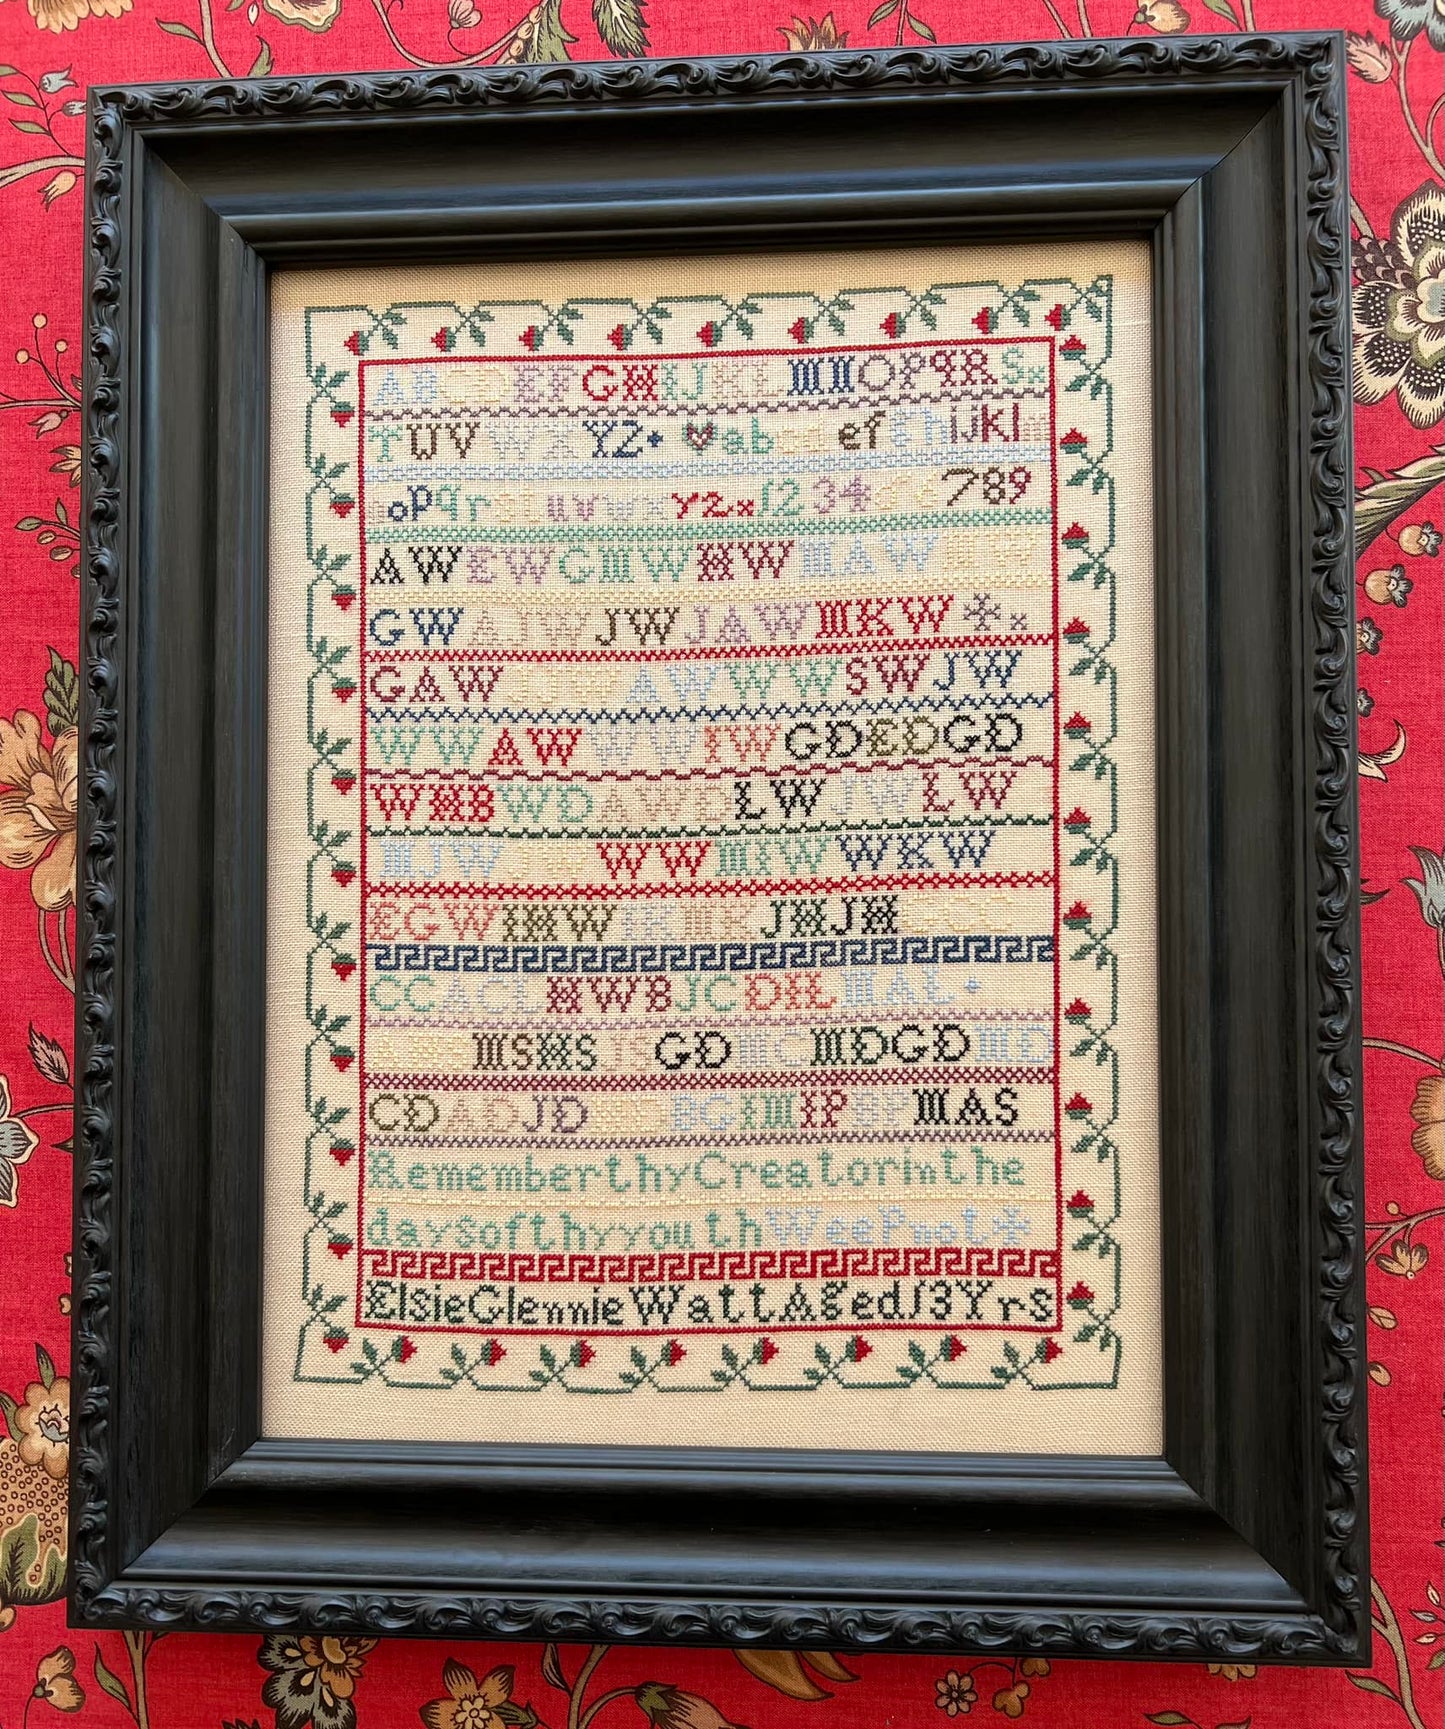 ABCDEFGHIJKLMNOPQRS
TUVWXYZ abcd efghijklm
nopqrstuvwxyz 1234 56 789
AW EW GMW HW MAW MW
GW AJW JW JAW MKW
GAW JJW AW WW SW JW
WW AW WW IW GD ED GD
WHB WD AWD LW JW LW
MJW JW WW MIW WKW
EGW IHW IK MK JH JH GCC
CC ACL HWB JC DHL MAL
MS HS JS GD MC MD GD MD
CD AD JD WD BG IM IP SP MAS
Remember thy Creator in the
days of thy youth Weep not
Elsie Glennie Watt Aged 13 Yrs